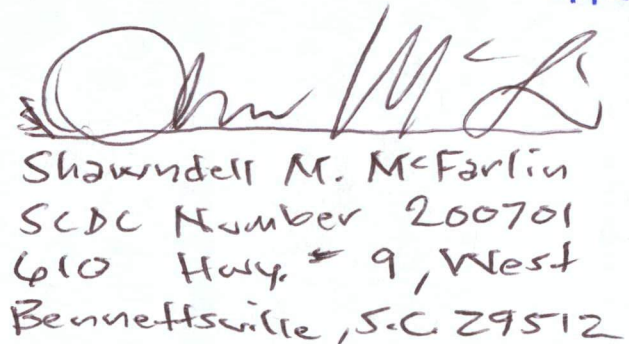 Shawndell M. McFarlin
SCDC Number 200701
610 Hwy. # 9, West
Bennettsville, S.C. 29512